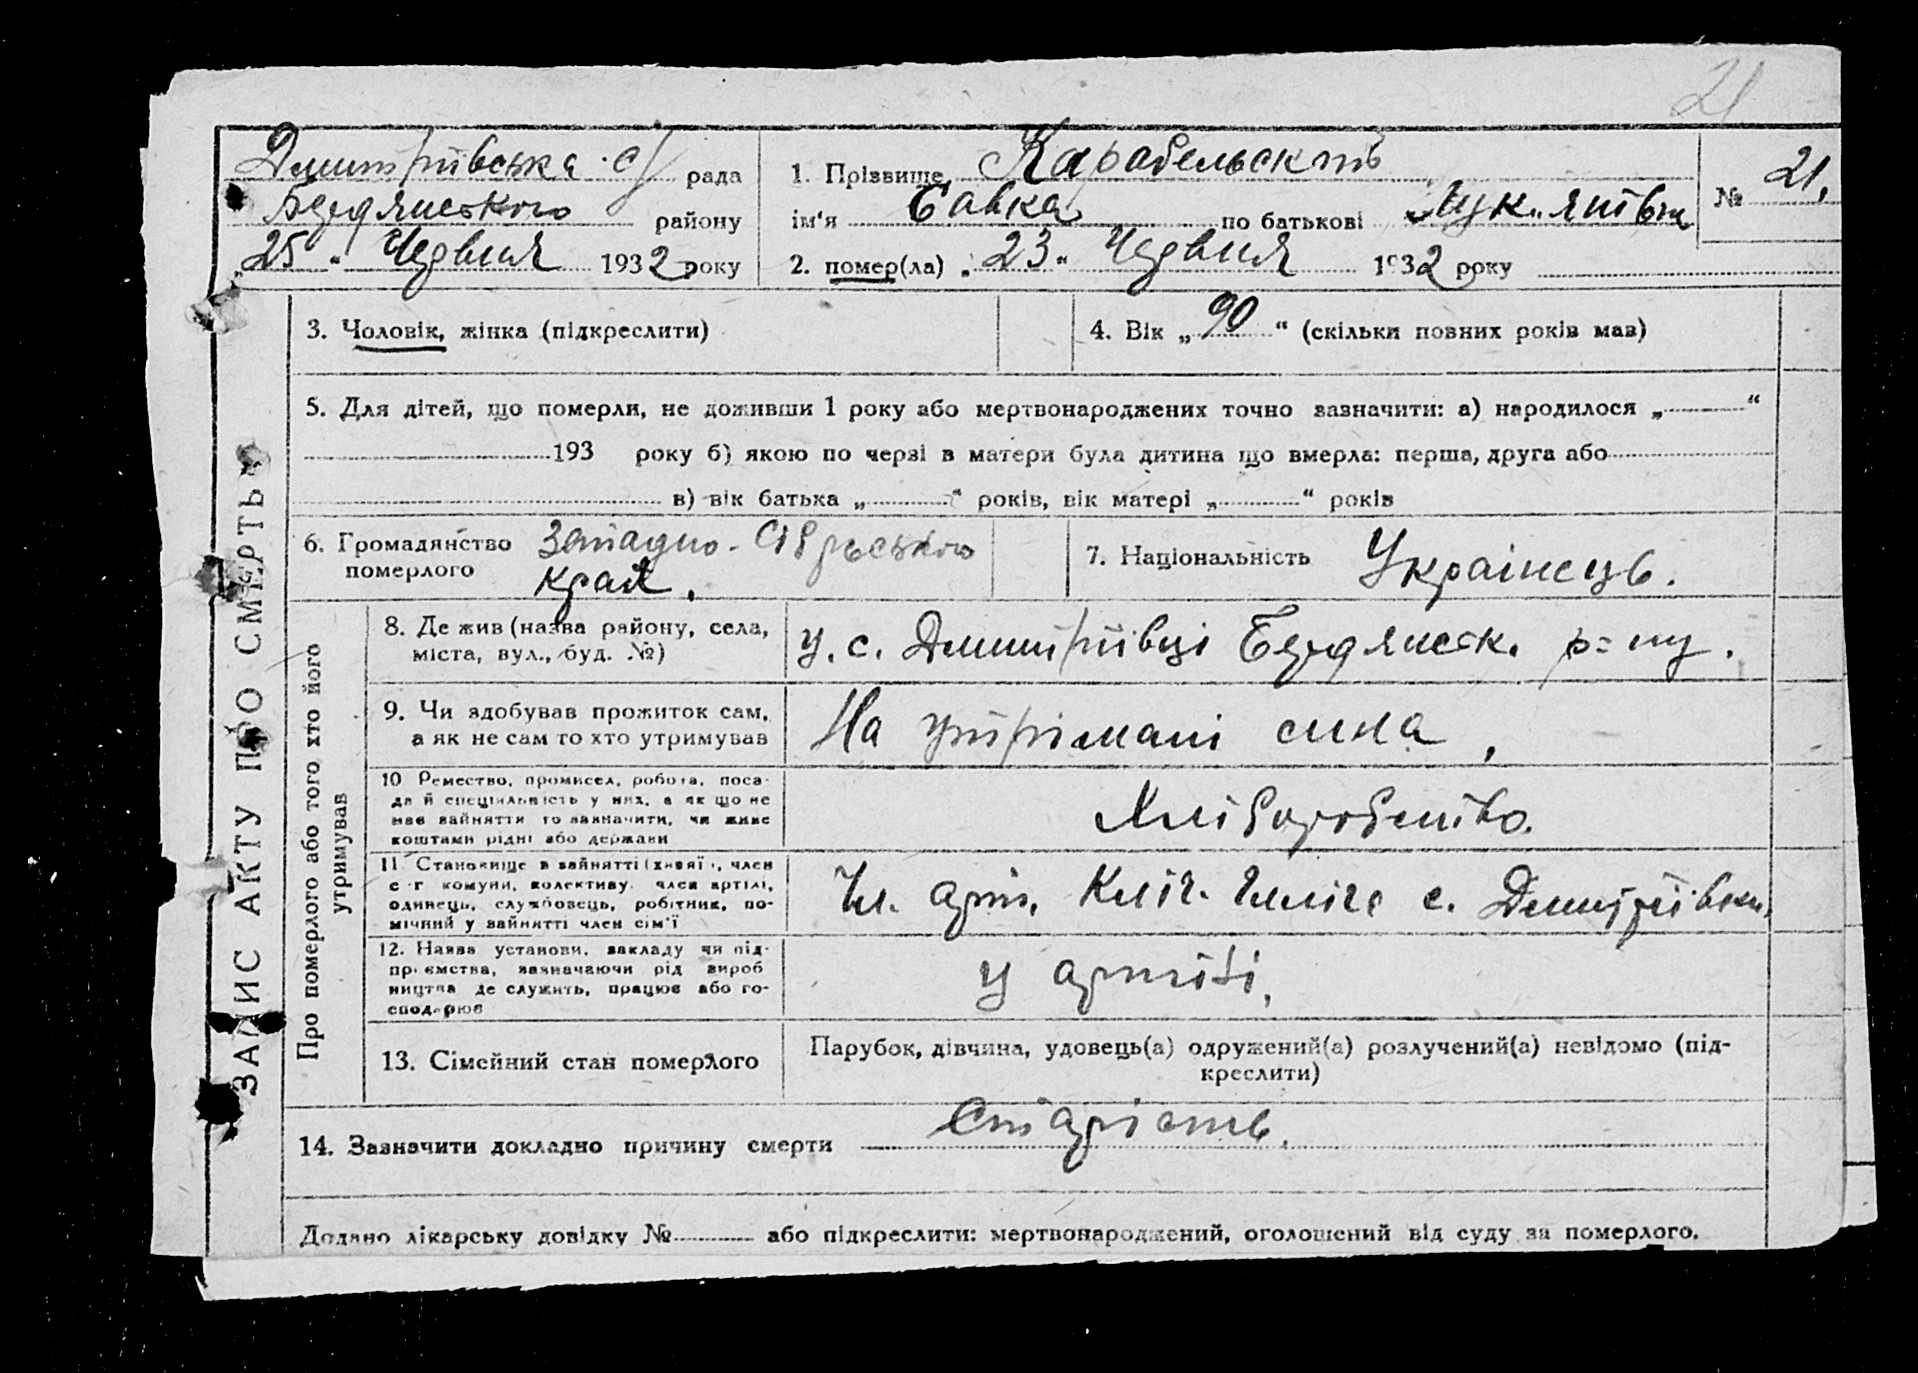 21
Дмитрівська с/рада
Бердянського району
„25“ Червня 1932 року
1. Прізвище
ім'я Савка по батькові
2. помер(ла) „23“ Червня 1932 року
№ 21.
ЗАПИС АКТУ ПРО СМЕРТЬ
3. Чоловік, жінка (підкреслити)
4. Вік „90“ (скільки повних років мав)
5. Для дітей, що померли, не доживши 1 року або мертвонароджених точно зазначити: а) народилося „ “
193 року б) якою по черзі в матери була дитина що вмерла: перша, друга або
в) вік батька „ “ років, вік матері „ “ років
6. Громадянство Западно-
померлого края.
7. Національність Украінець.
Про померлого або того хто його
утримував
8. Де жив (назва району, села,
міста, вул., буд. №)
у. с. Дмитрівці Бердянск. р=ну.
9. Чи здобував прожиток сам,
а як не сам то хто утримував
На утрімані сина,
10 Ремество, промисел, робота, поса-
да й спеціяльність у них, а як що не
мав зайняття то зазначити, чи живе
коштами рідні або держави
Хліборобство.
11 Становище в зайнятті (хазяї), член
с-г комуни, колективу, член артілі,
одинець, службовець, робітник, по-
мічний у зайнятті член сім'ї
Чл. арт. с. Дмитрівки,
12. Назва установи, закладу чи під-
приємства, зазначаючи рід вироб
ництва де служить, працює або го-
сподарює
у артілі,
13. Сімейний стан померлого
Парубок, дівчина, удовець(а) одружений(а) розлучений(а) невідомо (під-
креслити)
14. Зазначити докладно причину смерти Старість.
Додано лікарську довідку № або підкреслити: мертвонароджений, оголошений від суду за померлого.